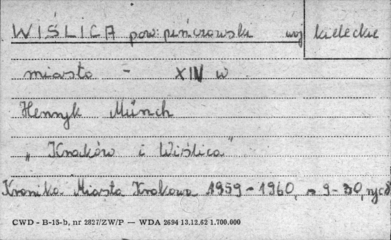 WIŚLICA pow: pińczowski woj kieleckie
miasto - XIV w.
Henryk Münch
„Kraków i Wiślica"
Kronika Miasta Krakowa 1959-1960, s 9-30, ryc 8
CWD - B-15-b, nr 2827/ZW/P — WDA 2694 13.12.62 1.700.000